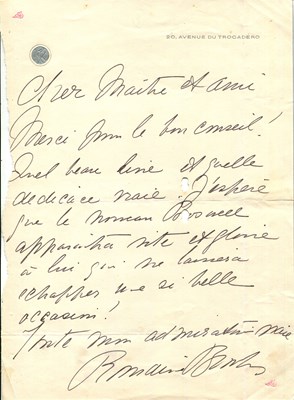 20, AVENUE DU TROCADÉRO
Cher Maître et ami
Merci pour le bon conseil!
Quel beau livre et quelle
dedicace vraie. J'espère
que le nouveau
apparaitra vite et gloire
à lui qui ne laissera
echapper une si belle
occasion!
Toute mon admiration vraie